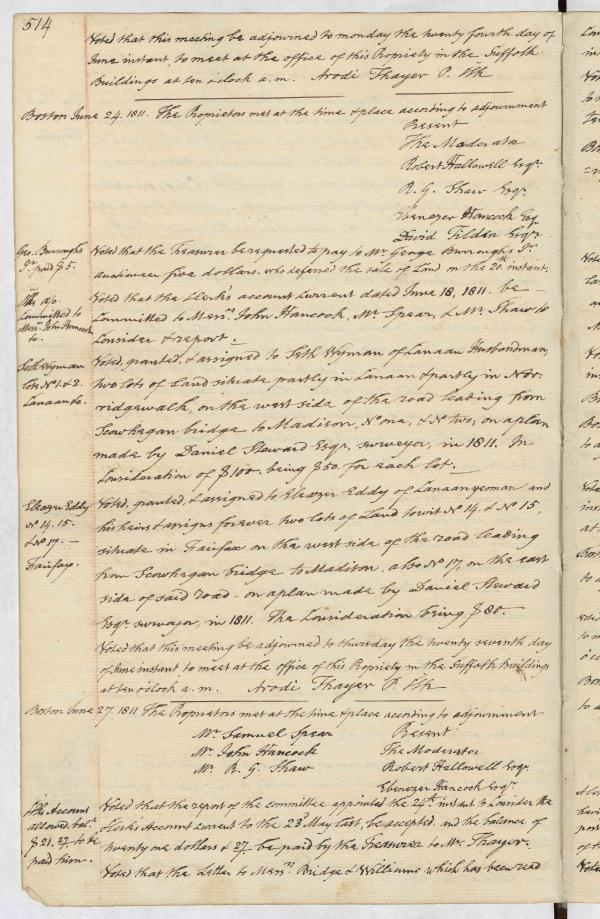 514
Voted that this meeting be adjourned to monday the twenty fourth day of
June instant, to meet at the office of this Propriety in the Suffolk
Buildings at ten o'clock a.m. Arodi Thayer P. Clk
Boston June 24. 1811. The Proprietors met at the time & place according to adjournment
Present
The Moderator
Robert Hallowell Esqr.
R. G. Shaw Esqr
Ebenezer Hancock Esq
David Tilden Esqr.
Geo. Burroughs
Jr. paid $5.
Voted that the Treasurer be requested to pay to Mr. George Burroughs Jr.
auctioneer five dollars. who deferred the sale of Land on the 20th instant.
Clks a/c
Committed to
Messrs. John Hancock
&c.
Voted that the Clerk's account current dated June 18, 1811. be
Committed to Messrs. John Hancock, Mr. Spear, & Mr. Shaw to
Consider & report.
Seth Wyman
lots No. 1. & 2.
Canaan &c.
Voted, granted, & assigned to Seth Wyman of Canaan Husbandman,
two lots of Land situate partly in Canaan & partly in Nor-
ridgewalk, on the west side of the road leading from
Scowhegan bridge to Madison, No. one, & No. two; on a plan
made by Daniel Steward Esqr. surveyor, in 1811. In
Consideration of $100. being $50. for each lot.
Eleazer Eddy
No. 14. 15.
& No. 17.
Fairfax.
Voted, granted, & assigned to Eleazer Eddy of Canaan yeoman and
his heirs & assigns forever two lots of Land to wit No. 14, & No. 15,
situate in Fairfax on the west side of the road leading
from Scowhegan bridge to Madison, also No. 17, on the east
side of said road - on a plan made by Daniel Steward
Esqr. surveyor, in 1811. The Consideration being $80.
Voted that this meeting be adjourned to thursday the twenty seventh day
of June instant to meet at the office of this Propriety in the Suffolk Buildings
at ten o'clock a.m. Arodi Thayer P. Clk
Boston June 27. 1811 The Proprietors met at the time & place according to adjournment
Mr. Samuel Spear
Mr. John Hancock
Mr. R. G. Shaw
Present
The Moderator
Robert Hallowell Esqr.
Ebenezer Hancock Esqr.
Clks Account
allowed, bale.
$21.27 to be
paid him.
Voted that the report of the committee appointed the 24th instant to Consider the
Clerk's Account current to the 23d May last, be accepted. and the balance of
twenty one dollars & 27 be paid by the Treasurer to Mr. Thayer.
Voted that the Letter to Messrs. Bridge & Williams which has been read